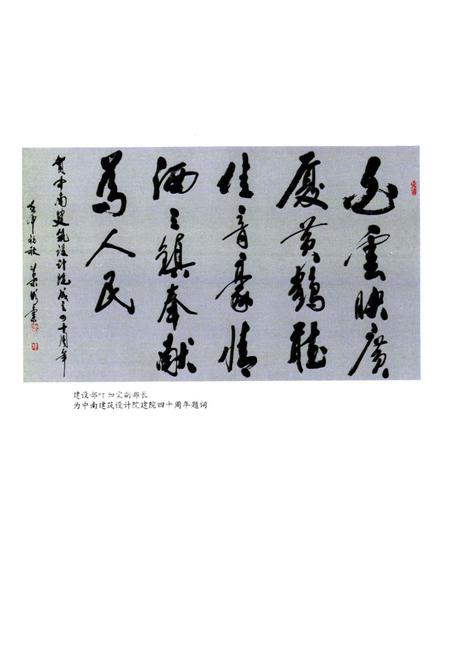 白雲映廣
厦黄鶴聽
佳音豪情
洒三鎮奉献
為人民
贺中南建筑设计院成立四十周年
壬申初秋 葉如棠
建设部叶如棠副部长
为中南建筑设计院建院四十周年题词